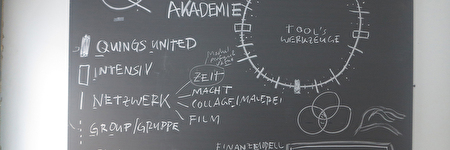 AKADEMIE
TOOL'S
WERKZEUGE
QUINGS UNITED
INTENSIV
NETZWERK
ZEIT
MACHT
COLLAGE/MALEREI
FILM
GROUP/GRUPPE